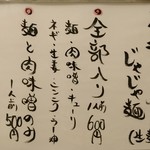 じゃじゃ麺
全部入り 1人前 600円
麺・肉味噌・キューリ
ネギ・生姜・ニンニク・ラー油
麺と肉味噌のみ
1人前 500円